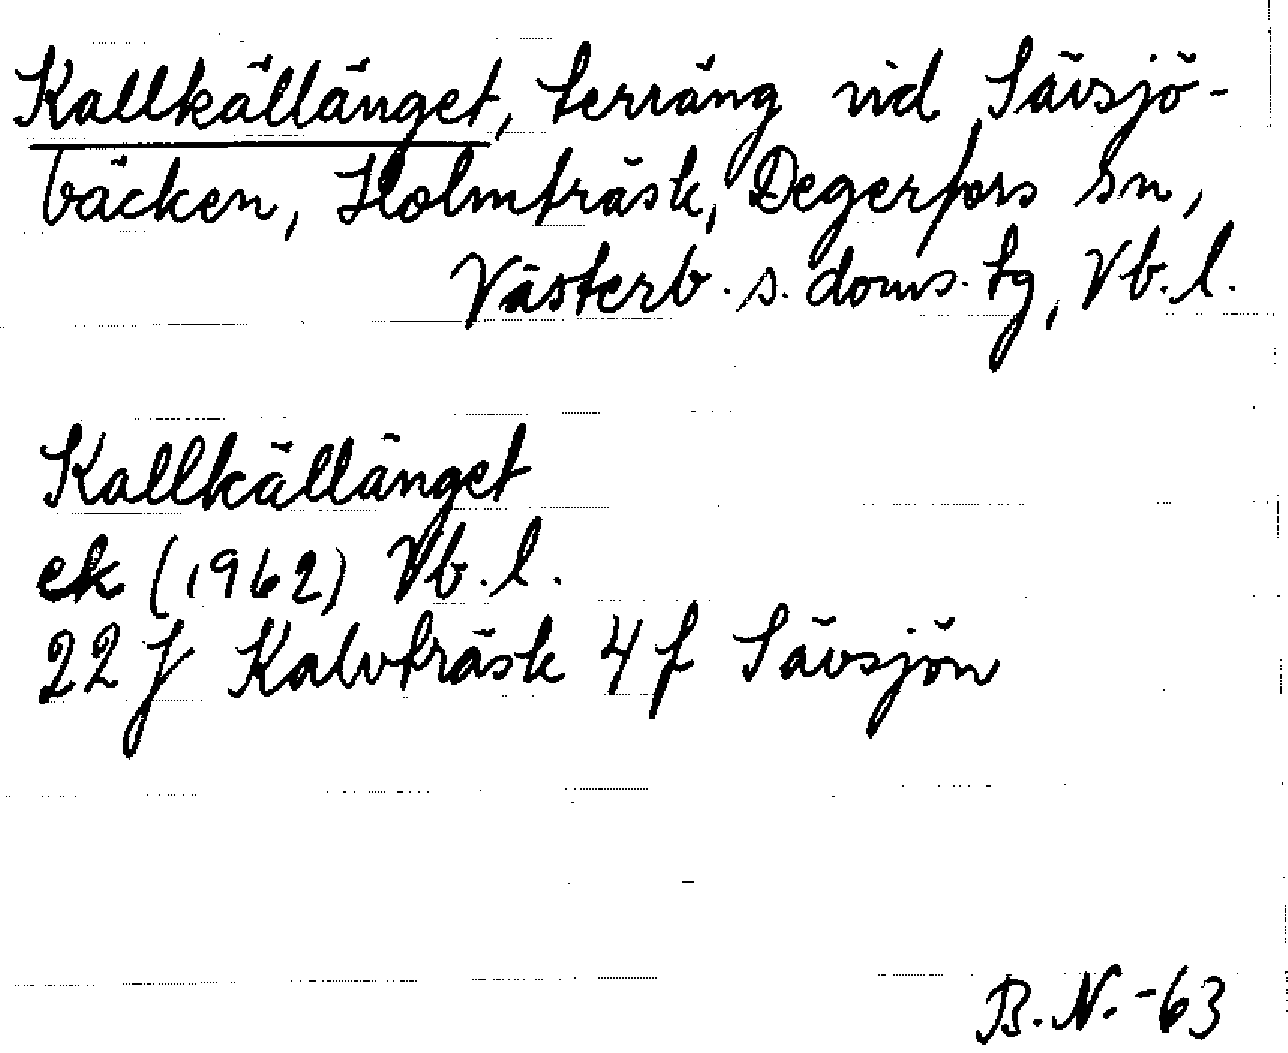 Kallkällänget, terräng vid Sävsjö-
bäcken, Holmträsk, Degerfors sn,
Västerb. s. doms. tg, Vb. l.
Kallkällänget
ek (1962) Vb. l.
22 J Kalvträsk 4 f Sävsjön
B. N. -63